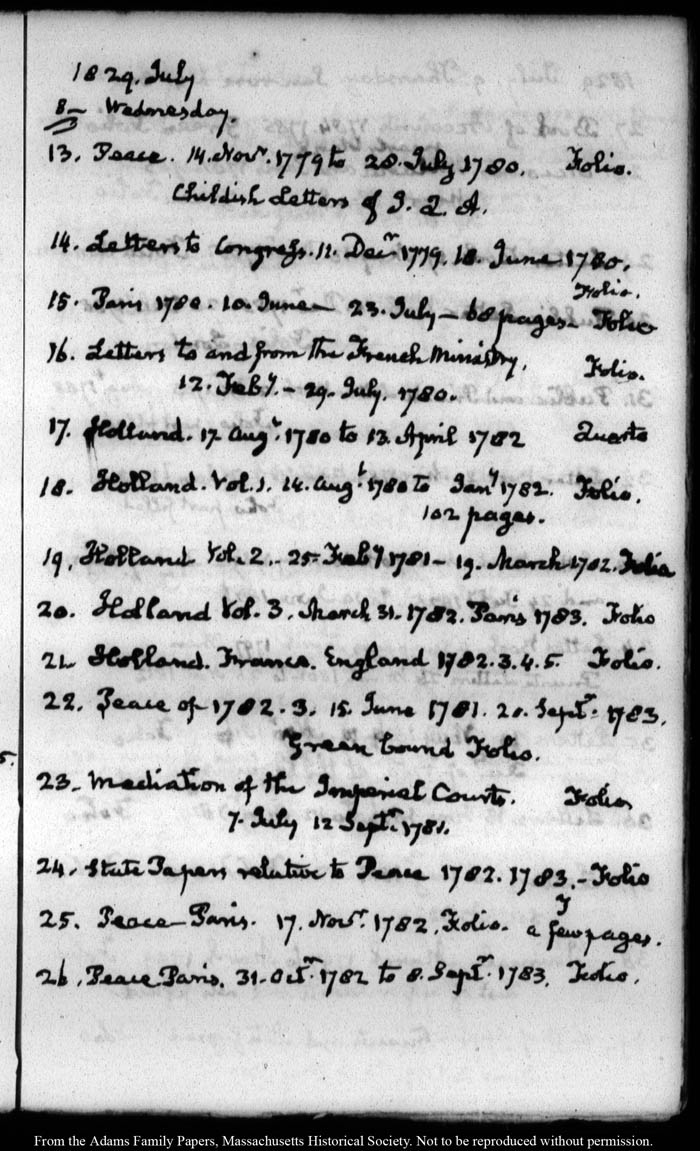 1829. July
8— Wednesday.
13. Peace. 14. Novr. 1779 to 28. July 1780. Folio.
Childish Letters of J. Q. A.
14. Letters to Congress. 11. Decr 1779. 18. June 1780.
Folio.
15. Paris 1780. 10. June — 23. July — 68 pages — Folio
16. Letters to and from the French Ministry. Folio.
12. Feby. — 29. July. 1780.
17. Holland. 17 Augt. 1780 to 13. April 1782 Quarto
18. Holland. Vol. 1. 14. Augt 1780 to Jany 1782. Folio.
102 pages.
19. Holland Vol. 2. — 25 Feby 1781 — 19. March 1782. Folio
20. Holland Vol. 3. March 31. 1782. Paris 1783. Folio
21. Holland. France. England 1782. 3. 4. 5. Folio.
22. Peace of 1782. 3. 15. June 1781. 20. Septr. 1783.
Green bound Folio.
23. Mediation of the Imperial Courts. Folio
7. July 12 Septr. 1781.
24. State Papers relative to Peace 1782. 1783. — Folio
25. Peace — Paris. 17. Novr. 1782. Folio. a few pages.
26. Peace Paris. 31. Octr. 1782 to 8. Septr. 1783. Folio.
5.
From the Adams Family Papers, Massachusetts Historical Society. Not to be reproduced without permission.